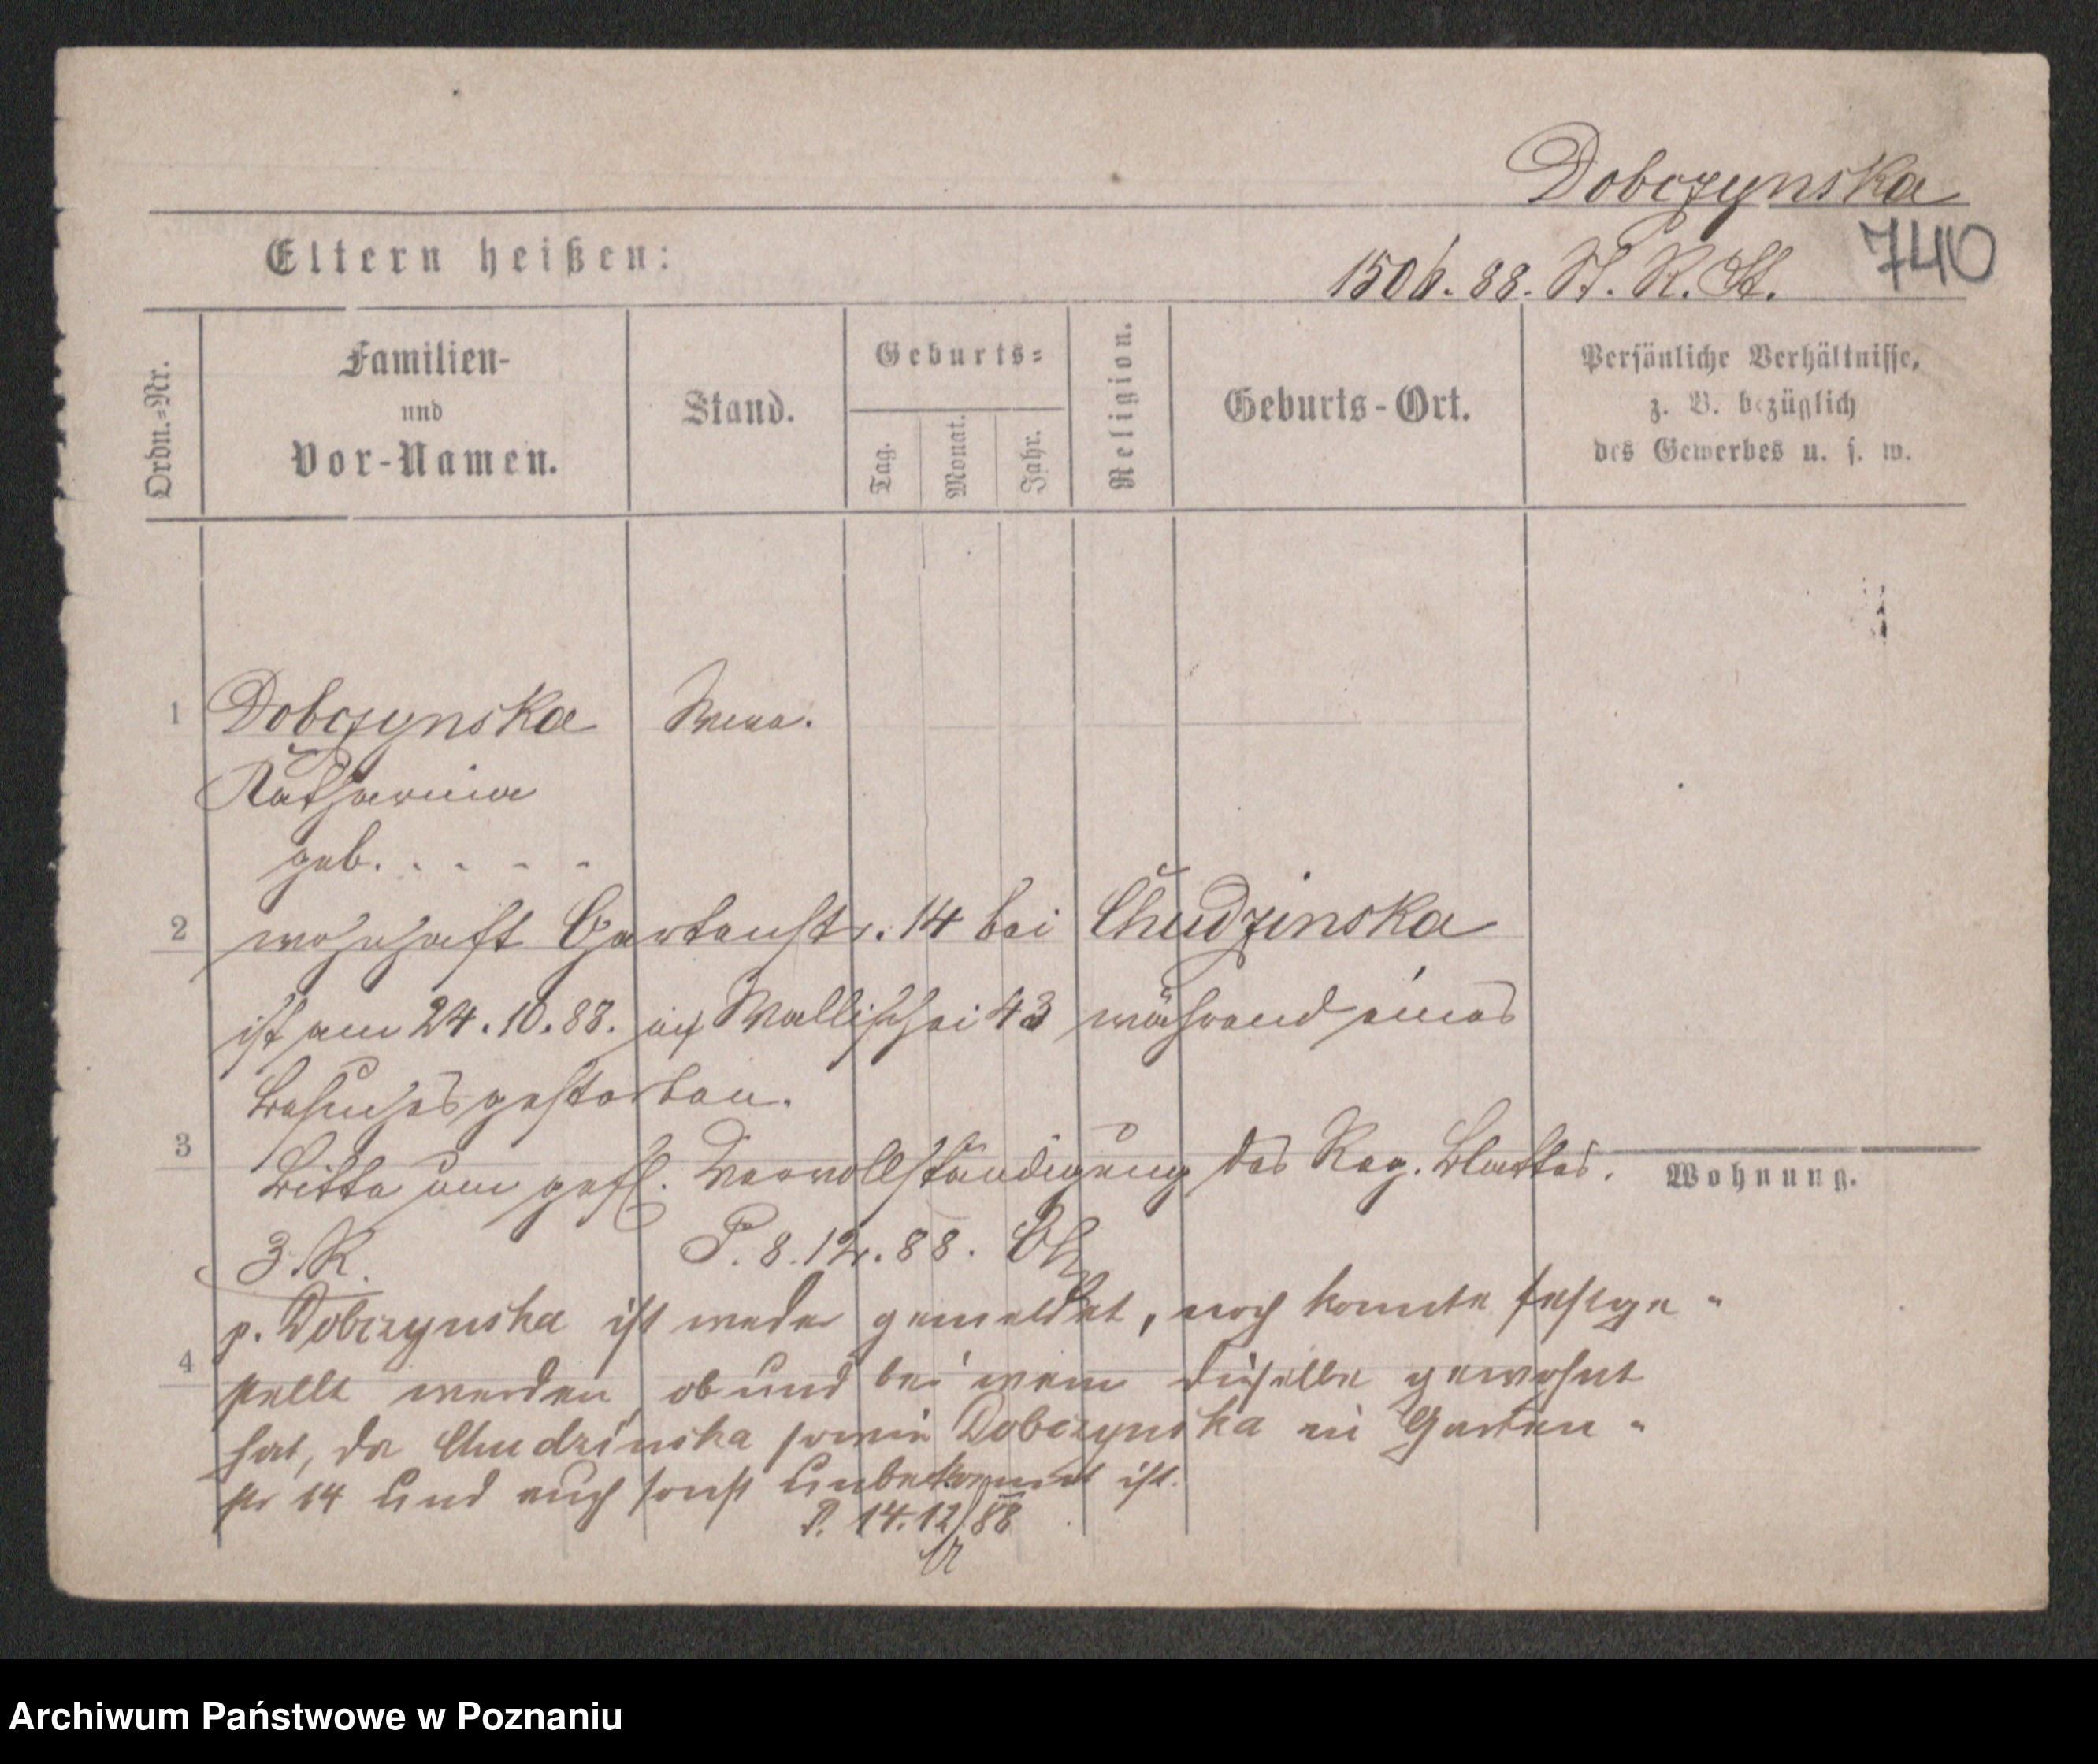 Dobczynska
740
Eltern heißen:
1506. 88. St. R. St.
Ordn.=Nr.
Familien-
und
Vor-Namen.
Stand.
Geburts=
Tag.
Monat.
Jahr.
Religion.
Geburts-Ort.
Persönliche Verhältnisse,
z. B. bezüglich
des Gewerbes u. s. w.
1 Dobczynska Wwe.
Katharina
geb. . - - - -
2 wohnhaft Gartenstr. 14 bei Chudzinska
ist am 24.10.88. auf Wallischei 43 während eines
Besuches gestorben.
3 Bitte um gefl. Vervollständigung des Reg. Blattes.
Wohnung.
3. R. P. 8. 12. 88.
p. Dobczynska ist weder gemeldet, noch konnte festge-
4 stellt werden, ob und bei wem dieselbe gewohnt
hat, da Chudzinska sowie Dobczynska in Garten-
str 14 und auch sonst unbekannt ist.
P. 14.12/88
Archiwum Państwowe w Poznaniu